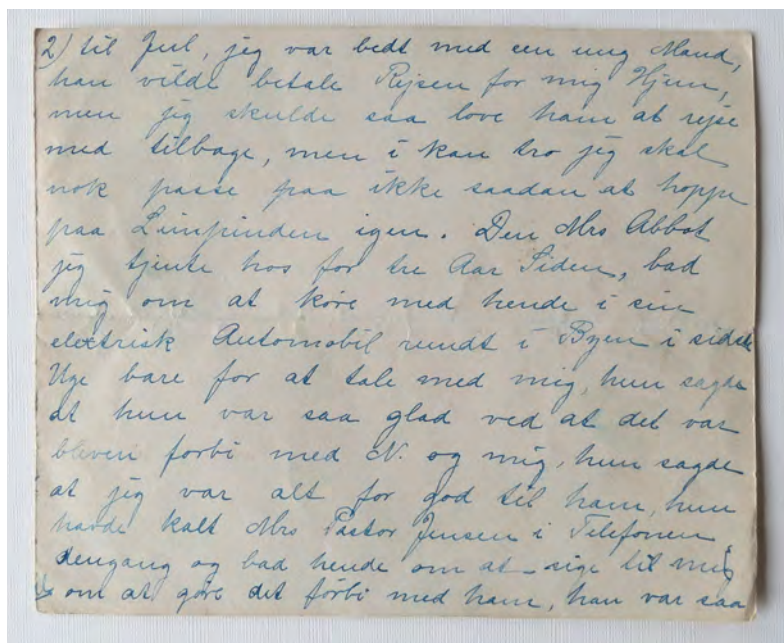 2) til Jul, jeg var bedt med een ung Mand,
han vilde betale Rejsen for mig Hjem,
men jeg skulde saa love ham at rejse
med tilbage, men i kan tro jeg skal
nok passe paa ikke saadan at hoppe
paa Limpinden igen. Den Mrs Abbot
jeg tjente hos for tre Aar Siden, bad
mig om at køre med hende i sin
electrisk Automobil rundt i Byen i sidste
Uge bare for at tale med mig, hun sagde
at hun var saa glad ved at det var
bleven forbi med N. og mig, hun sagde
at jeg var alt for god til ham, hun
havde kalt Mrs Pastor Jensen i Telefonen
dengang og bad hende om at sige til mig
om at gøre det forbi med ham, han var saa